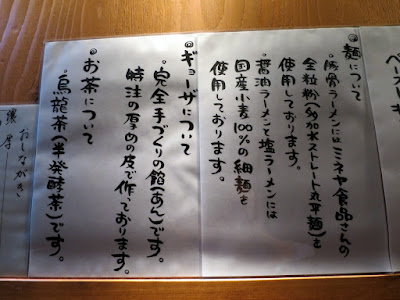 ◎麺について
・豚骨ラーメンにはミネヤ食品さんの
全粒粉(多加水ストレート丸平麺)を
使用しております。
・醤油ラーメンと塩ラーメンには
国産小麦100%の細麺を
使用しております。
◎ギョーザについて
・完全手づくりの餡(あん)です。
特注の厚めの皮で作っております。
◎お茶について
・烏龍茶(半発酵茶)です。
おしながき
濃厚